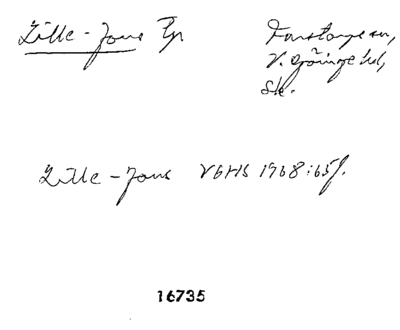 Lille-Jons Fyr
Farstorps sn,
V. Göinge hd,
Sk.
Lille-Jons VGHS 1968:65f.
16735